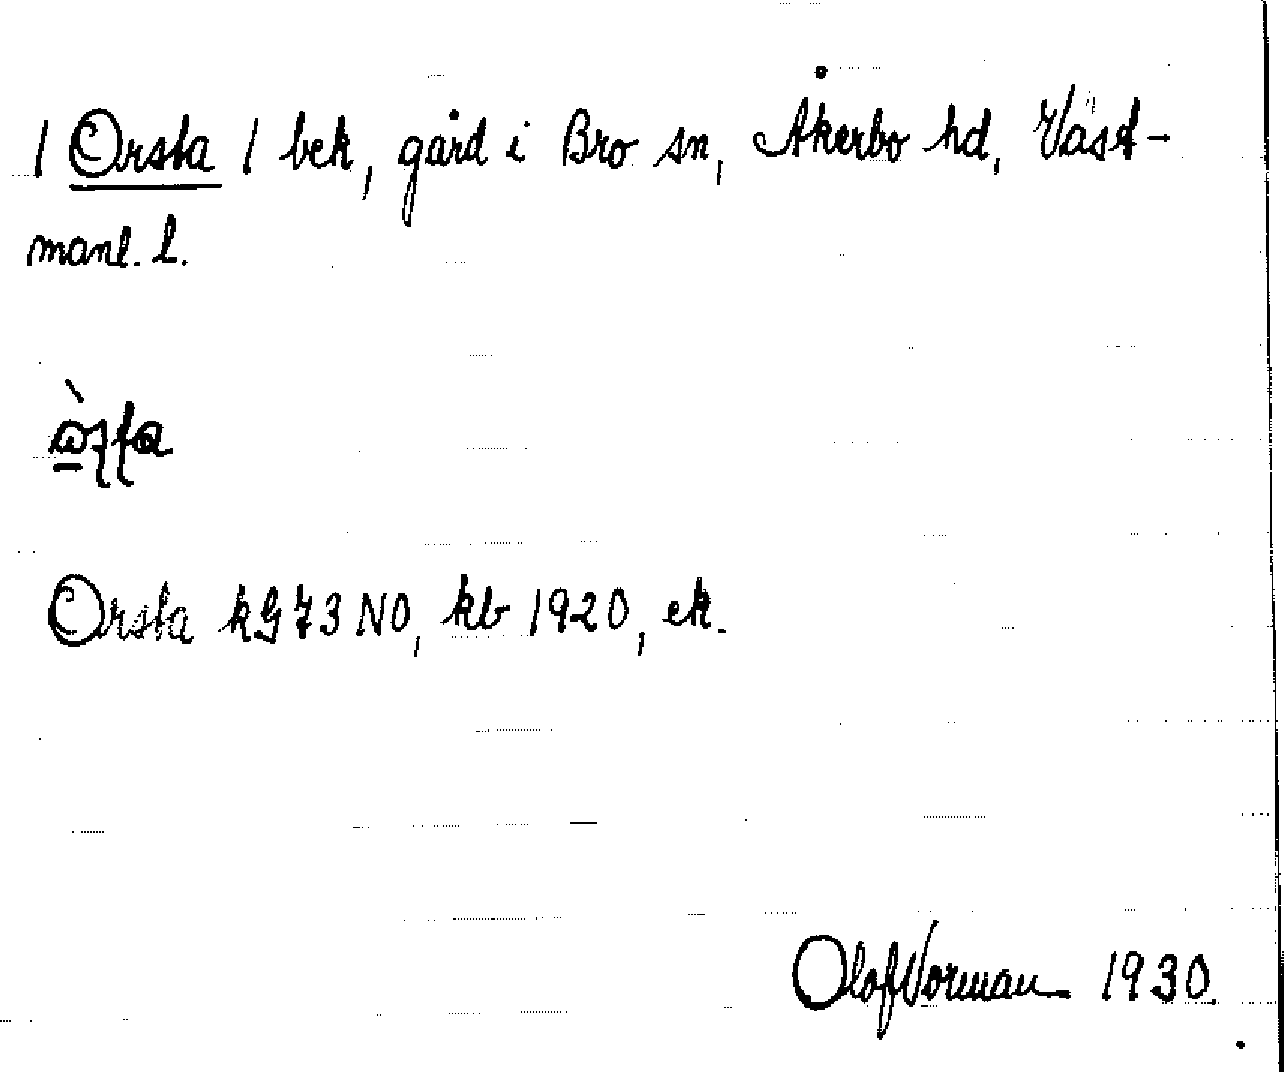 / Orsta / bek, gård i Bro sn, Åkerbo hd, Väst-
manl. l.
Orsta kG 73 NO, kb 1920, ek.
Olof Norman 1930.